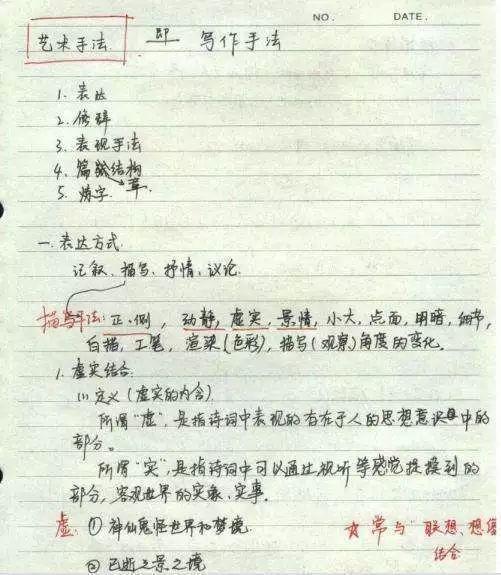 NO. DATE.
艺术手法 即 写作手法
1. 表达
2. 修辞
3. 表现手法
4. 篇章结构
5. 炼字
一. 表达方式
记叙、描写、抒情、议论.
描写手法: 正、侧, 动静, 虚实, 景情, 小大, 点面, 明暗, 细节,
白描, 工笔, 渲染(色彩), 描写(观察)角度的变化.
1. 虚实结合.
(1) 定义(虚实的内含)
所谓“虚”, 是指诗词中表现的存在于人的思想意识中的
部分.
所谓“实”, 是指诗词中可以通过视听等感觉捉摸到的
部分, 客观世界的实象、实事.
虚: ① 神仙鬼怪世界和梦境. ☆常与“联想、想像
结合
② 已逝之景之境